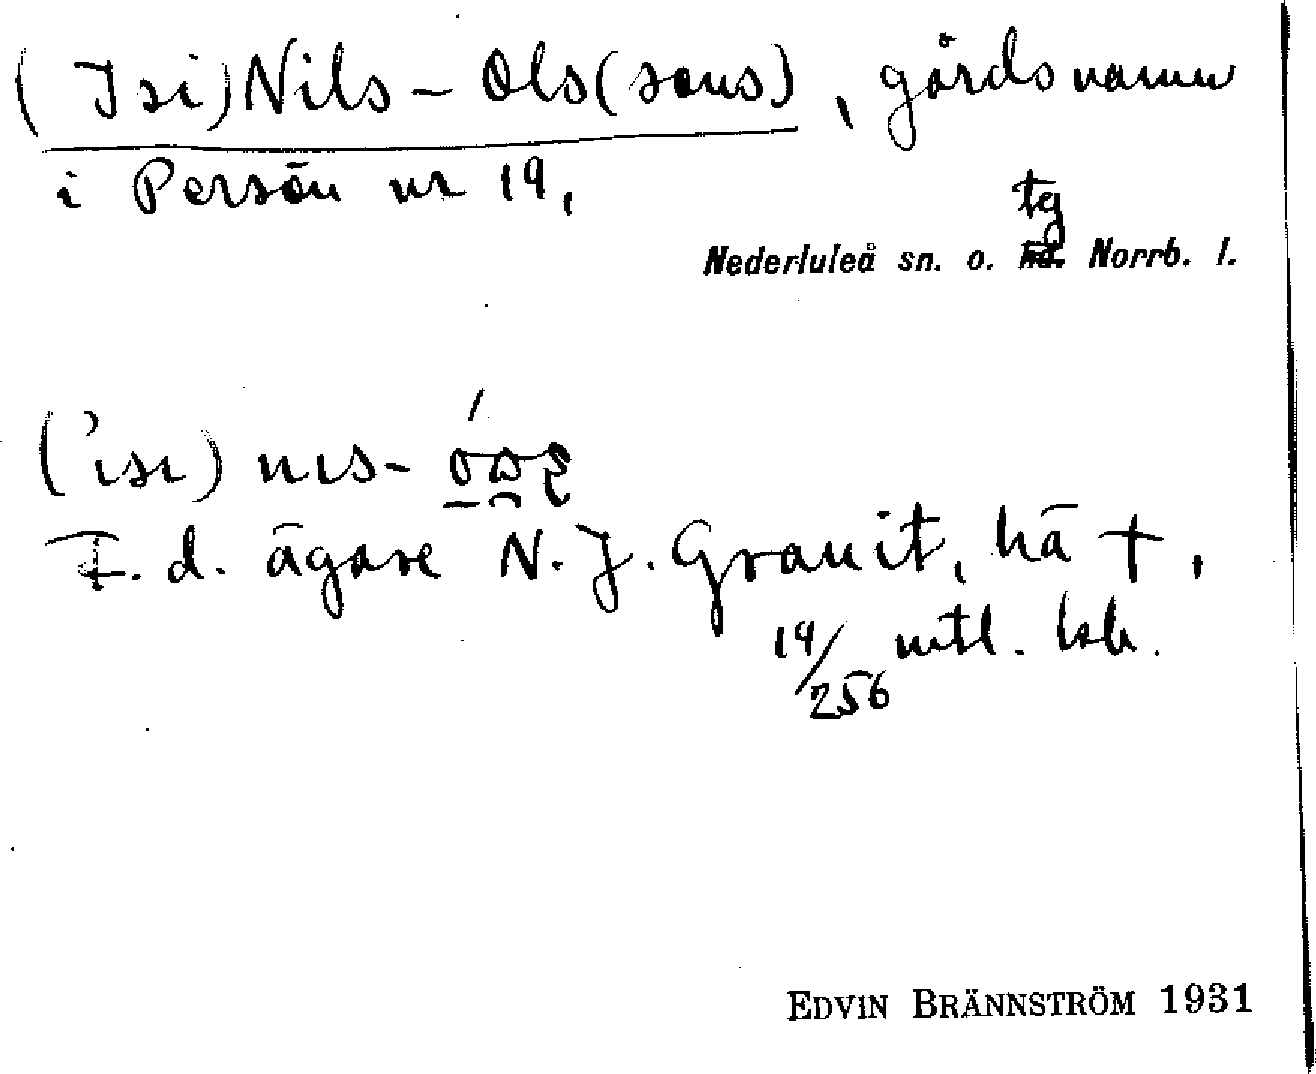 (Isi)Nils-Ols(sons), gårdsnamn
i Persön nr 19,
tg
Nederluleå sn. o. hd. Norrb. l.
('ısı) nıs-
F.d. ägare N.J. Granit, hä †,
14/256 mtl. lsk.
EDVIN BRÄNNSTRÖM 1931